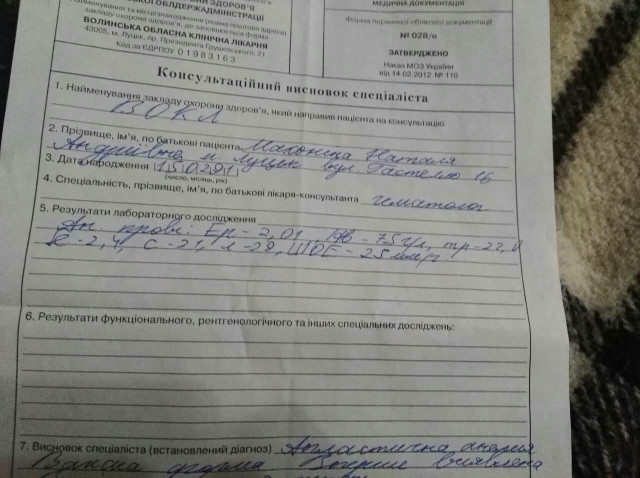 ОХОРОНИ ЗДОРОВ'Я
ОБЛДЕРЖАДМІНІСТРАЦІЇ
Найменування та місцезнаходження (повна поштова адреса)
закладу охорони здоров'я, де заповнюється форма
ВОЛИНСЬКА ОБЛАСНА КЛІНІЧНА ЛІКАРНЯ
43005, м. Луцьк, пр. Президента Грушевського, 21
Код за ЄДРПОУ 01983163
МЕДИЧНА ДОКУМЕНТАЦІЯ
Форма первинної облікової документації
№ 028/о
ЗАТВЕРДЖЕНО
Наказ МОЗ України
від 14.02.2012 № 110
Консультаційний висновок спеціаліста
1. Найменування закладу охорони здоров'я, який направив пацієнта на консультацію
ВОКЛ
2. Прізвище, ім'я, по батькові пацієнта Наталя
Андріївна м Луцьк вул. Гастелло 16
3. Дата народження 15.02.91
(число, місяць, рік)
4. Спеціальність, прізвище, ім'я, по батькові лікаря-консультанта гематолог
5. Результати лабораторного дослідження
Ан. крові: Ер - 2,01 Нв - 75 г/л, тр - 22,0
с - 21, л - 29, ШОЕ - 25 мм/г
6. Результати функціонального, рентгенологічного та інших спеціальних досліджень:
7. Висновок спеціаліста (встановлений діагноз) Апластична анемія
Важка форма Вперше виявлена